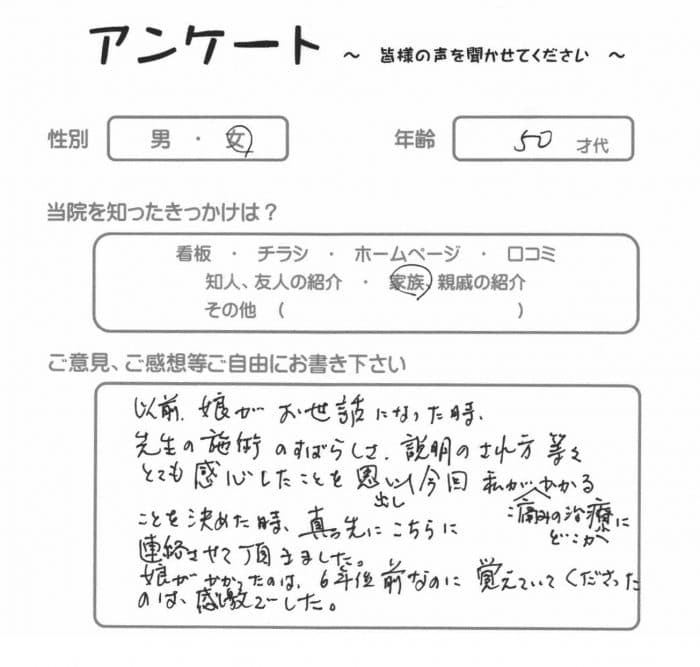 アンケート ～ 皆様の声を聞かせてください ～
性別 男 ・ 女 年齢 50 才代
当院を知ったきっかけは？
看板 ・ チラシ ・ ホームページ ・ 口コミ
知人、友人の紹介 ・ 家族、親戚の紹介
その他 （ ）
ご意見、ご感想等ご自由にお書き下さい
以前、娘がお世話になった時、
先生の施術のすばらしさ、説明のされ方等々
とても感心したことを思い出し今回私がかかる
痛みの治療に
どこかへ
ことを決めた時、真っ先にこちらに
連絡させて頂きました。
娘がかかったのは、6年位前なのに覚えていてくださった
のは、感激でした。